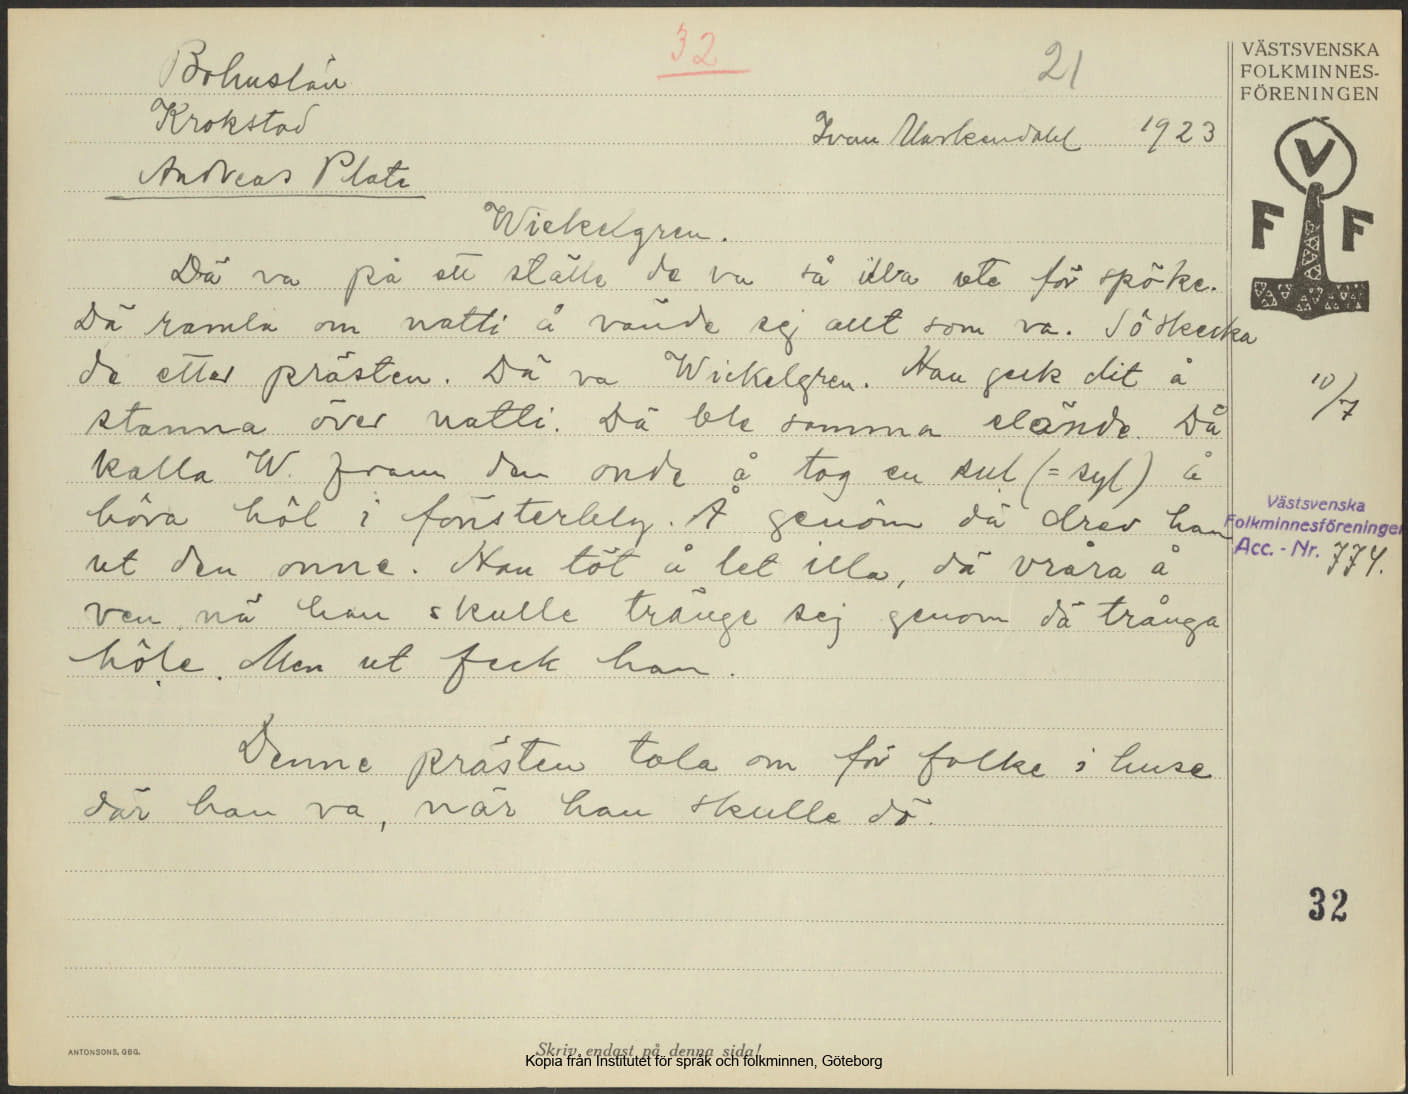 32
21
VÄSTSVENSKA
FOLKMINNES-
FÖRENINGEN
Bohuslän
Krokstad
Ivan 1923
Andreas Plate
V
F F
Wickelgren.
Dä va på ett ställe de va så illa ute för spöke.
Dä ramla om natti å vände sej allt som va. Så skecka
de etter prästen. Dä va Wickelgren. Han geck dit å
10/7
stanna över natti. Dä ble samma elände. Då
kalla W. fram den onde å tog en sul (= syl) å
böra höl i fönsterbly. Å genöm dä drev han
Västsvenska
Folkminnesföreningen
Acc. - Nr. 774.
ut den onne. Han töt å let illa, dä vråra å
ven nä han skulle tränge sej genom dä trånga
höle. Men ut feck han.
Denne prästen tala om för folke i huse
där han va, när han skulle dö.
32
ANTONSONS, GBG.
Skriv endast på denna sida!
Kopia från Institutet för språk och folkminnen, Göteborg